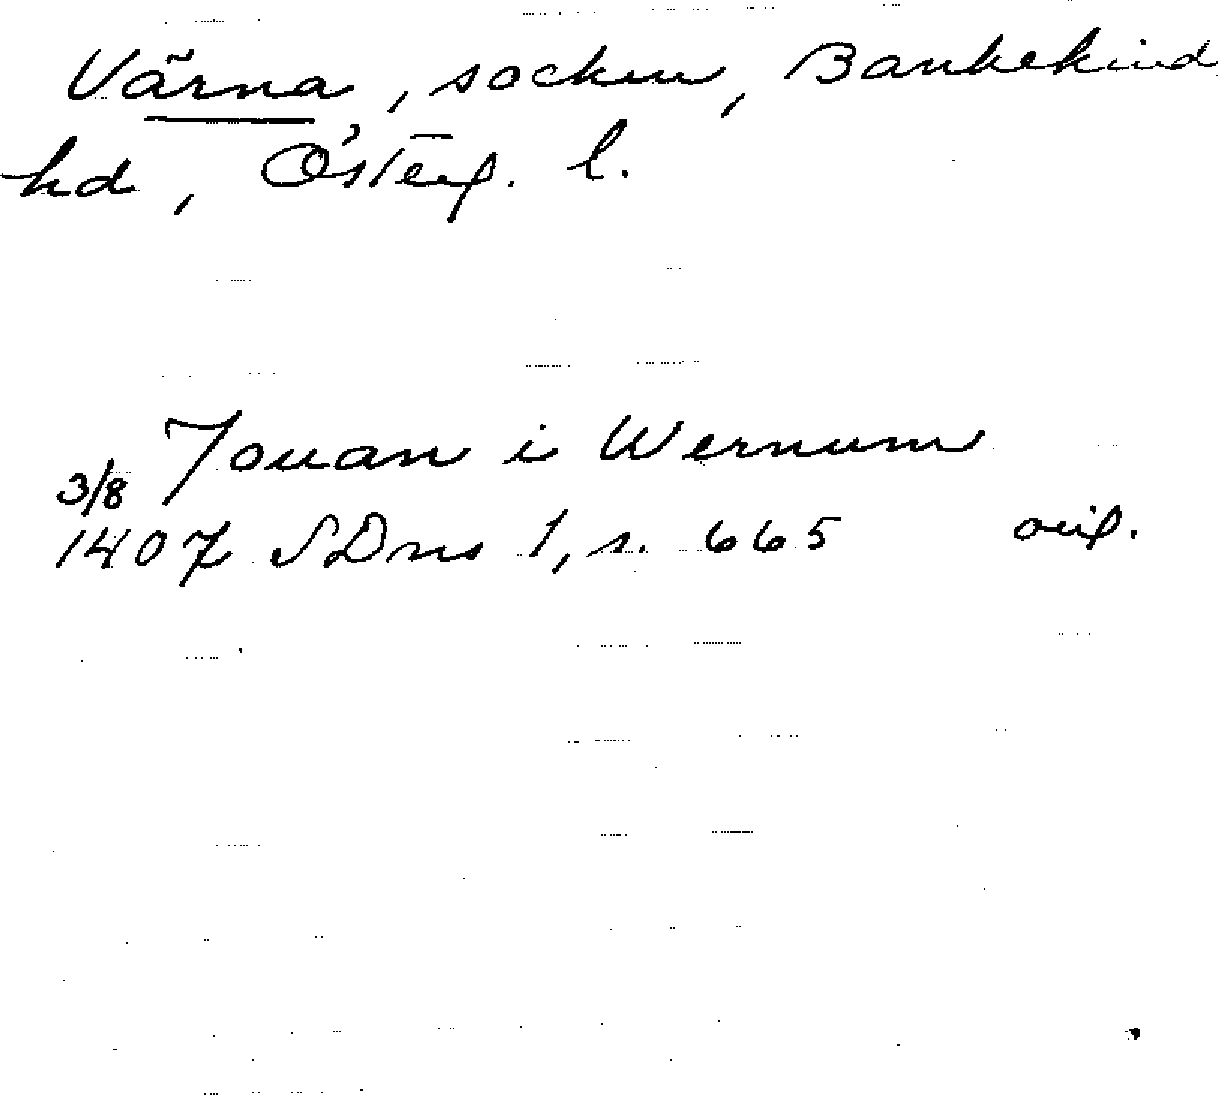 Värna, socken, Bankekind
hd, Österg. l.
Jouan i Wernum
3/8
1407 SDns 1, s. 665 orig.